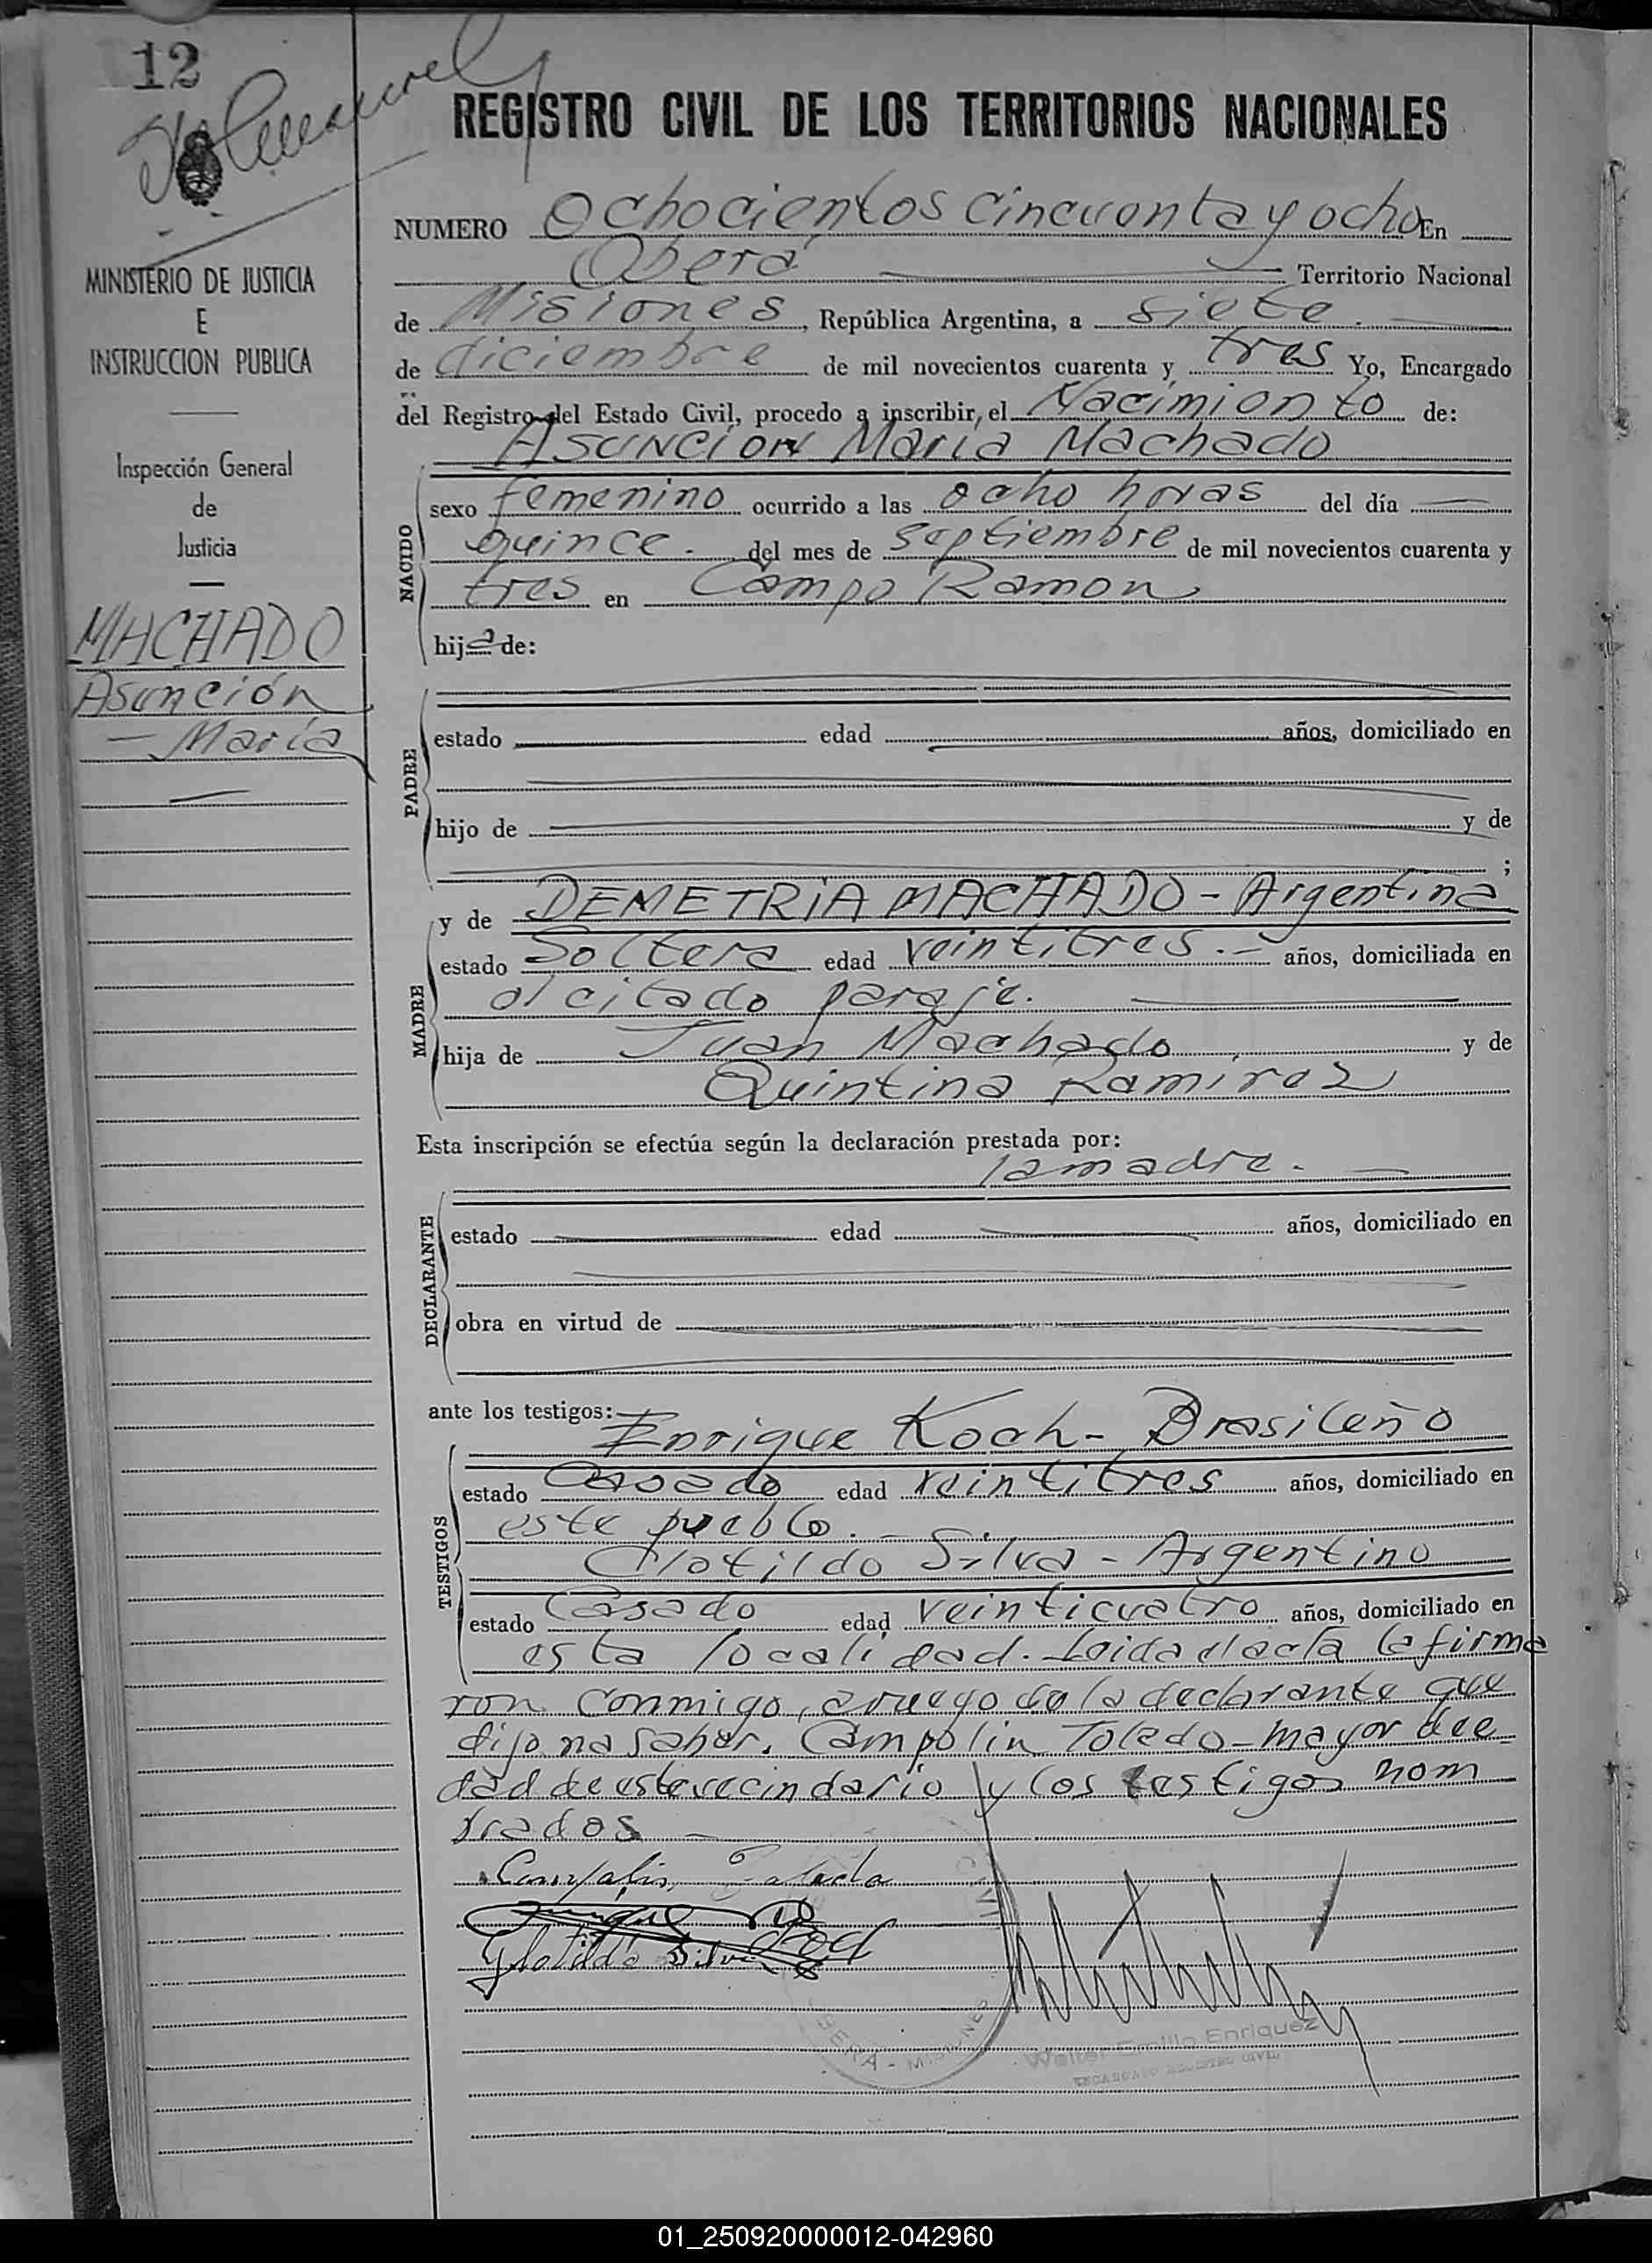 12
REGISTRO CIVIL DE LOS TERRITORIOS NACIONALES
MINISTERIO DE JUSTICIA
E
INSTRUCCION PUBLICA
Inspección General
de
Justicia
MACHADO
Asunción
- María
NUMERO Ochocientos cincuenta y ocho En
Oberá Territorio Nacional
de Misiones, República Argentina, a siete.
de diciembre de mil novecientos cuarenta y tres Yo, Encargado
del Registro del Estado Civil, procedo a inscribir, el Nacimiento de:
ASUNCION María Machado
NACIDO
sexo femenino ocurrido a las ocho horas del día
quince. del mes de septiembre de mil novecientos cuarenta y
tres en Campo Ramon
hija de:
PADRE
estado edad años, domiciliado en
hijo de y de
;
MADRE
y de DEMETRIA MACHADO - Argentina
estado Soltera edad veintitres. - años, domiciliada en
el citado paraje.
hija de Juan Machado y de
Quintina Ramirez
Esta inscripción se efectúa según la declaración prestada por:
la madre.
DECLARANTE
estado edad años, domiciliado en
obra en virtud de
ante los testigos:
TESTIGOS
Enrique Koch - Brasileño
estado Casado edad veintitres años, domiciliado en
este pueblo. -
Clotildo Silva - Argentino
estado Casado edad veinticuatro años, domiciliado en
esta localidad. Leida el acta la firma
ron conmigo, a ruego de la declarante que
dijo no saber, Campolin Toledo - mayor de e
dad de este vecindario y los testigos nom
brados
Campolin Toledo
Clotildo Silva
OBERA - MISIONES
Walter Emilio Enriquez
ENCARGADO REGISTRO CIVIL
01_250920000012-042960